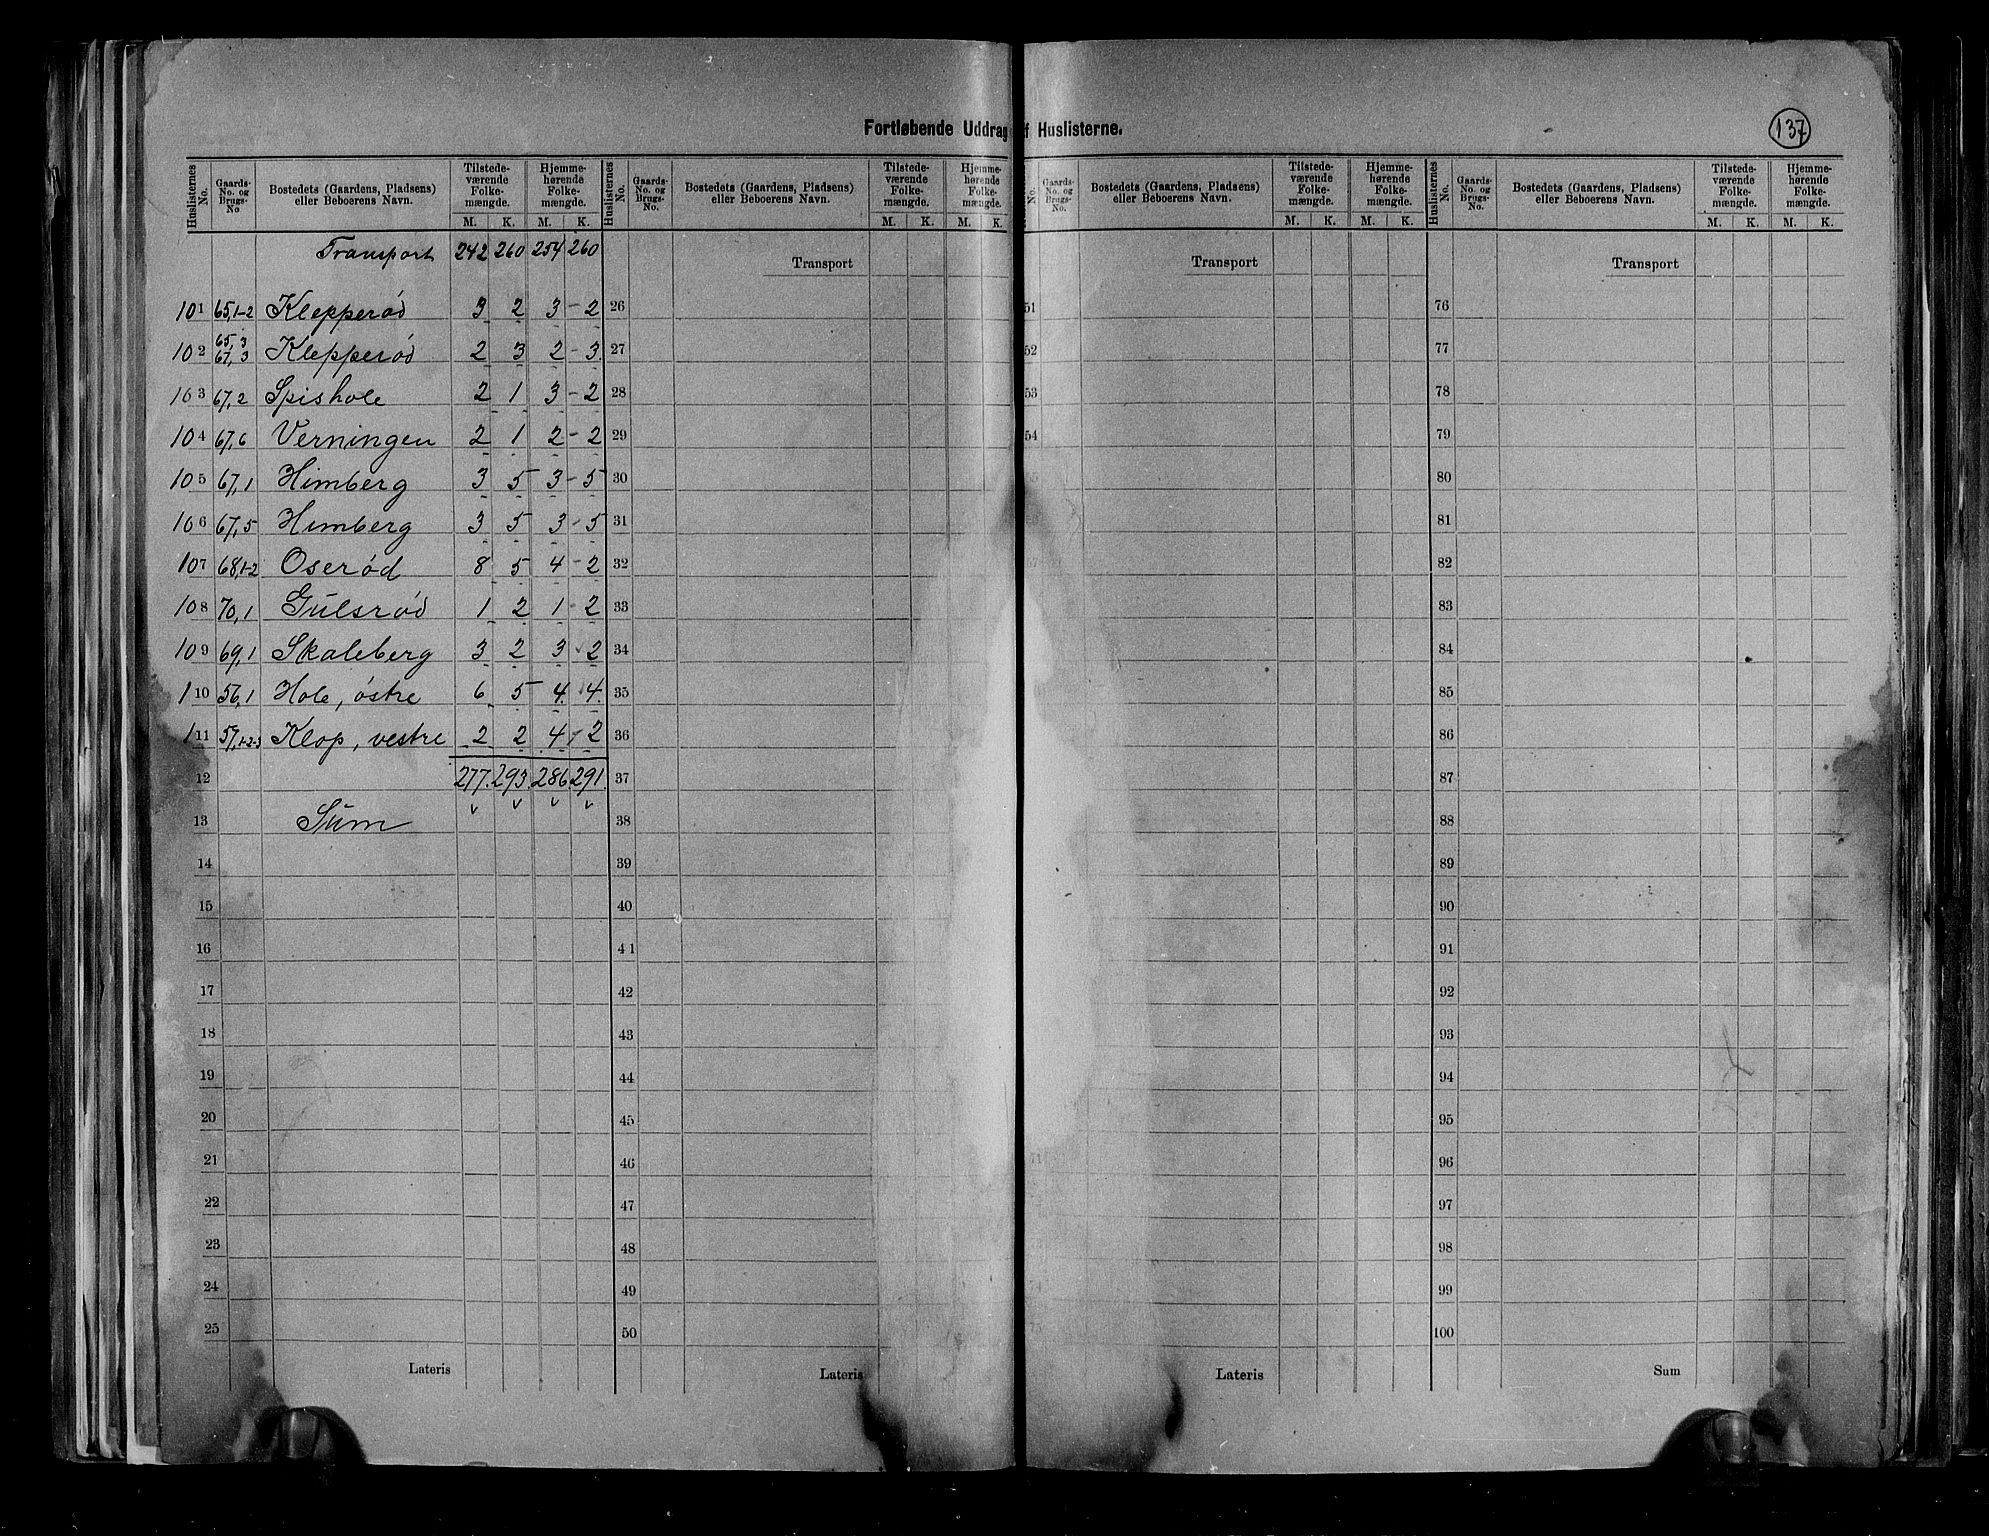 Fortløbende Uddrag f Huslisterne.
137
Huslisternes No. | Gaards-No. og Brugs-No | Bostedets (Gaardens, Pladsens) eller Beboerens Navn. | Tilstede-værende Folke-mængde. M. K. | Hjemme-hørende Folke-mængde. M. K. | Huslisternes No. | Gaards-No. og Brugs-No. | Bostedets (Gaardens, Pladsens) eller Beboerens Navn. | Tilstede-værende Folke-mængde. M. K. | Hjemme-hørende Folke-mængde. M. K. | No. | Gaards-No. og Brugs-No. | Bostedets (Gaardens, Pladsens) eller Beboerens Navn. | Tilstede-værende Folke-mængde. M. K. | Hjemme-hørende Folke-mængde. M. K. | Huslisternes No. | Gaards-No. og Brugs-No. | Bostedets (Gaardens, Pladsens) eller Beboerens Navn. | Tilstede-værende Folke-mængde. M. K. | Hjemme-hørende Folke-mængde. M. K.
Transport 242 260 254 260 Transport Transport Transport
101 65,1-2 Klepperød 3 2 3 - 2 26 51 76
102 65,3 67,3 Klepperød 2 3 2 - 3 27 52 77
103 67,2 Spishole 2 1 3 - 2 28 53 78
104 67,6 Verningen 2 1 2 - 2 29 54 79
105 67,1 Himberg 3 5 3 - 5 30 80
106 67,5 Himberg 3 5 3 - 5 31 81
107 68,1-2 Oserød 8 5 4 - 2 32 82
108 70,1 Gulsrød 1 2 1 - 2 33 83
109 69,1 Skaleberg 3 2 3 2 34 84
110 56,1 Hole, østre 6 5 4 4 35 85
111 57,1-2-3 Klop, vestre 2 2 4 2 36 86
12 277 293 286 291 37 87
13 Sum 38 88
14 39 89
15 40 90
16 41 91
17 42 92
18 43 93
19 44 94
20 45 95
21 46 96
22 47 97
23 48 98
24 49 99
25 50 100
Lateris Lateris Lateris Sum